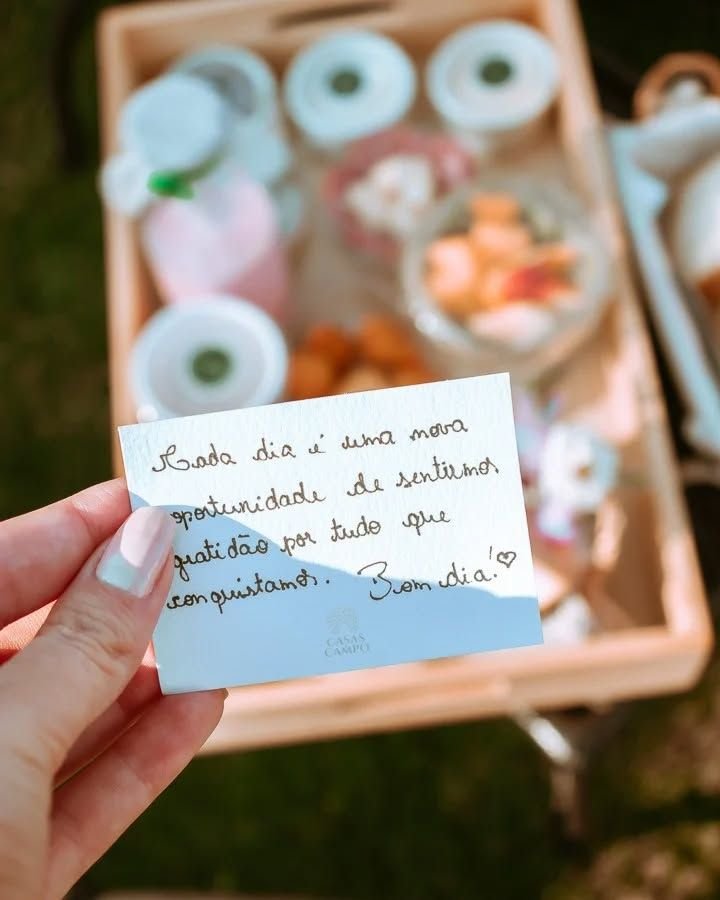 Cada dia é uma nova
oportunidade de sentirmos
gratidão por tudo que
conquistamos. Bom dia! ♡
CASAS
CAMPO